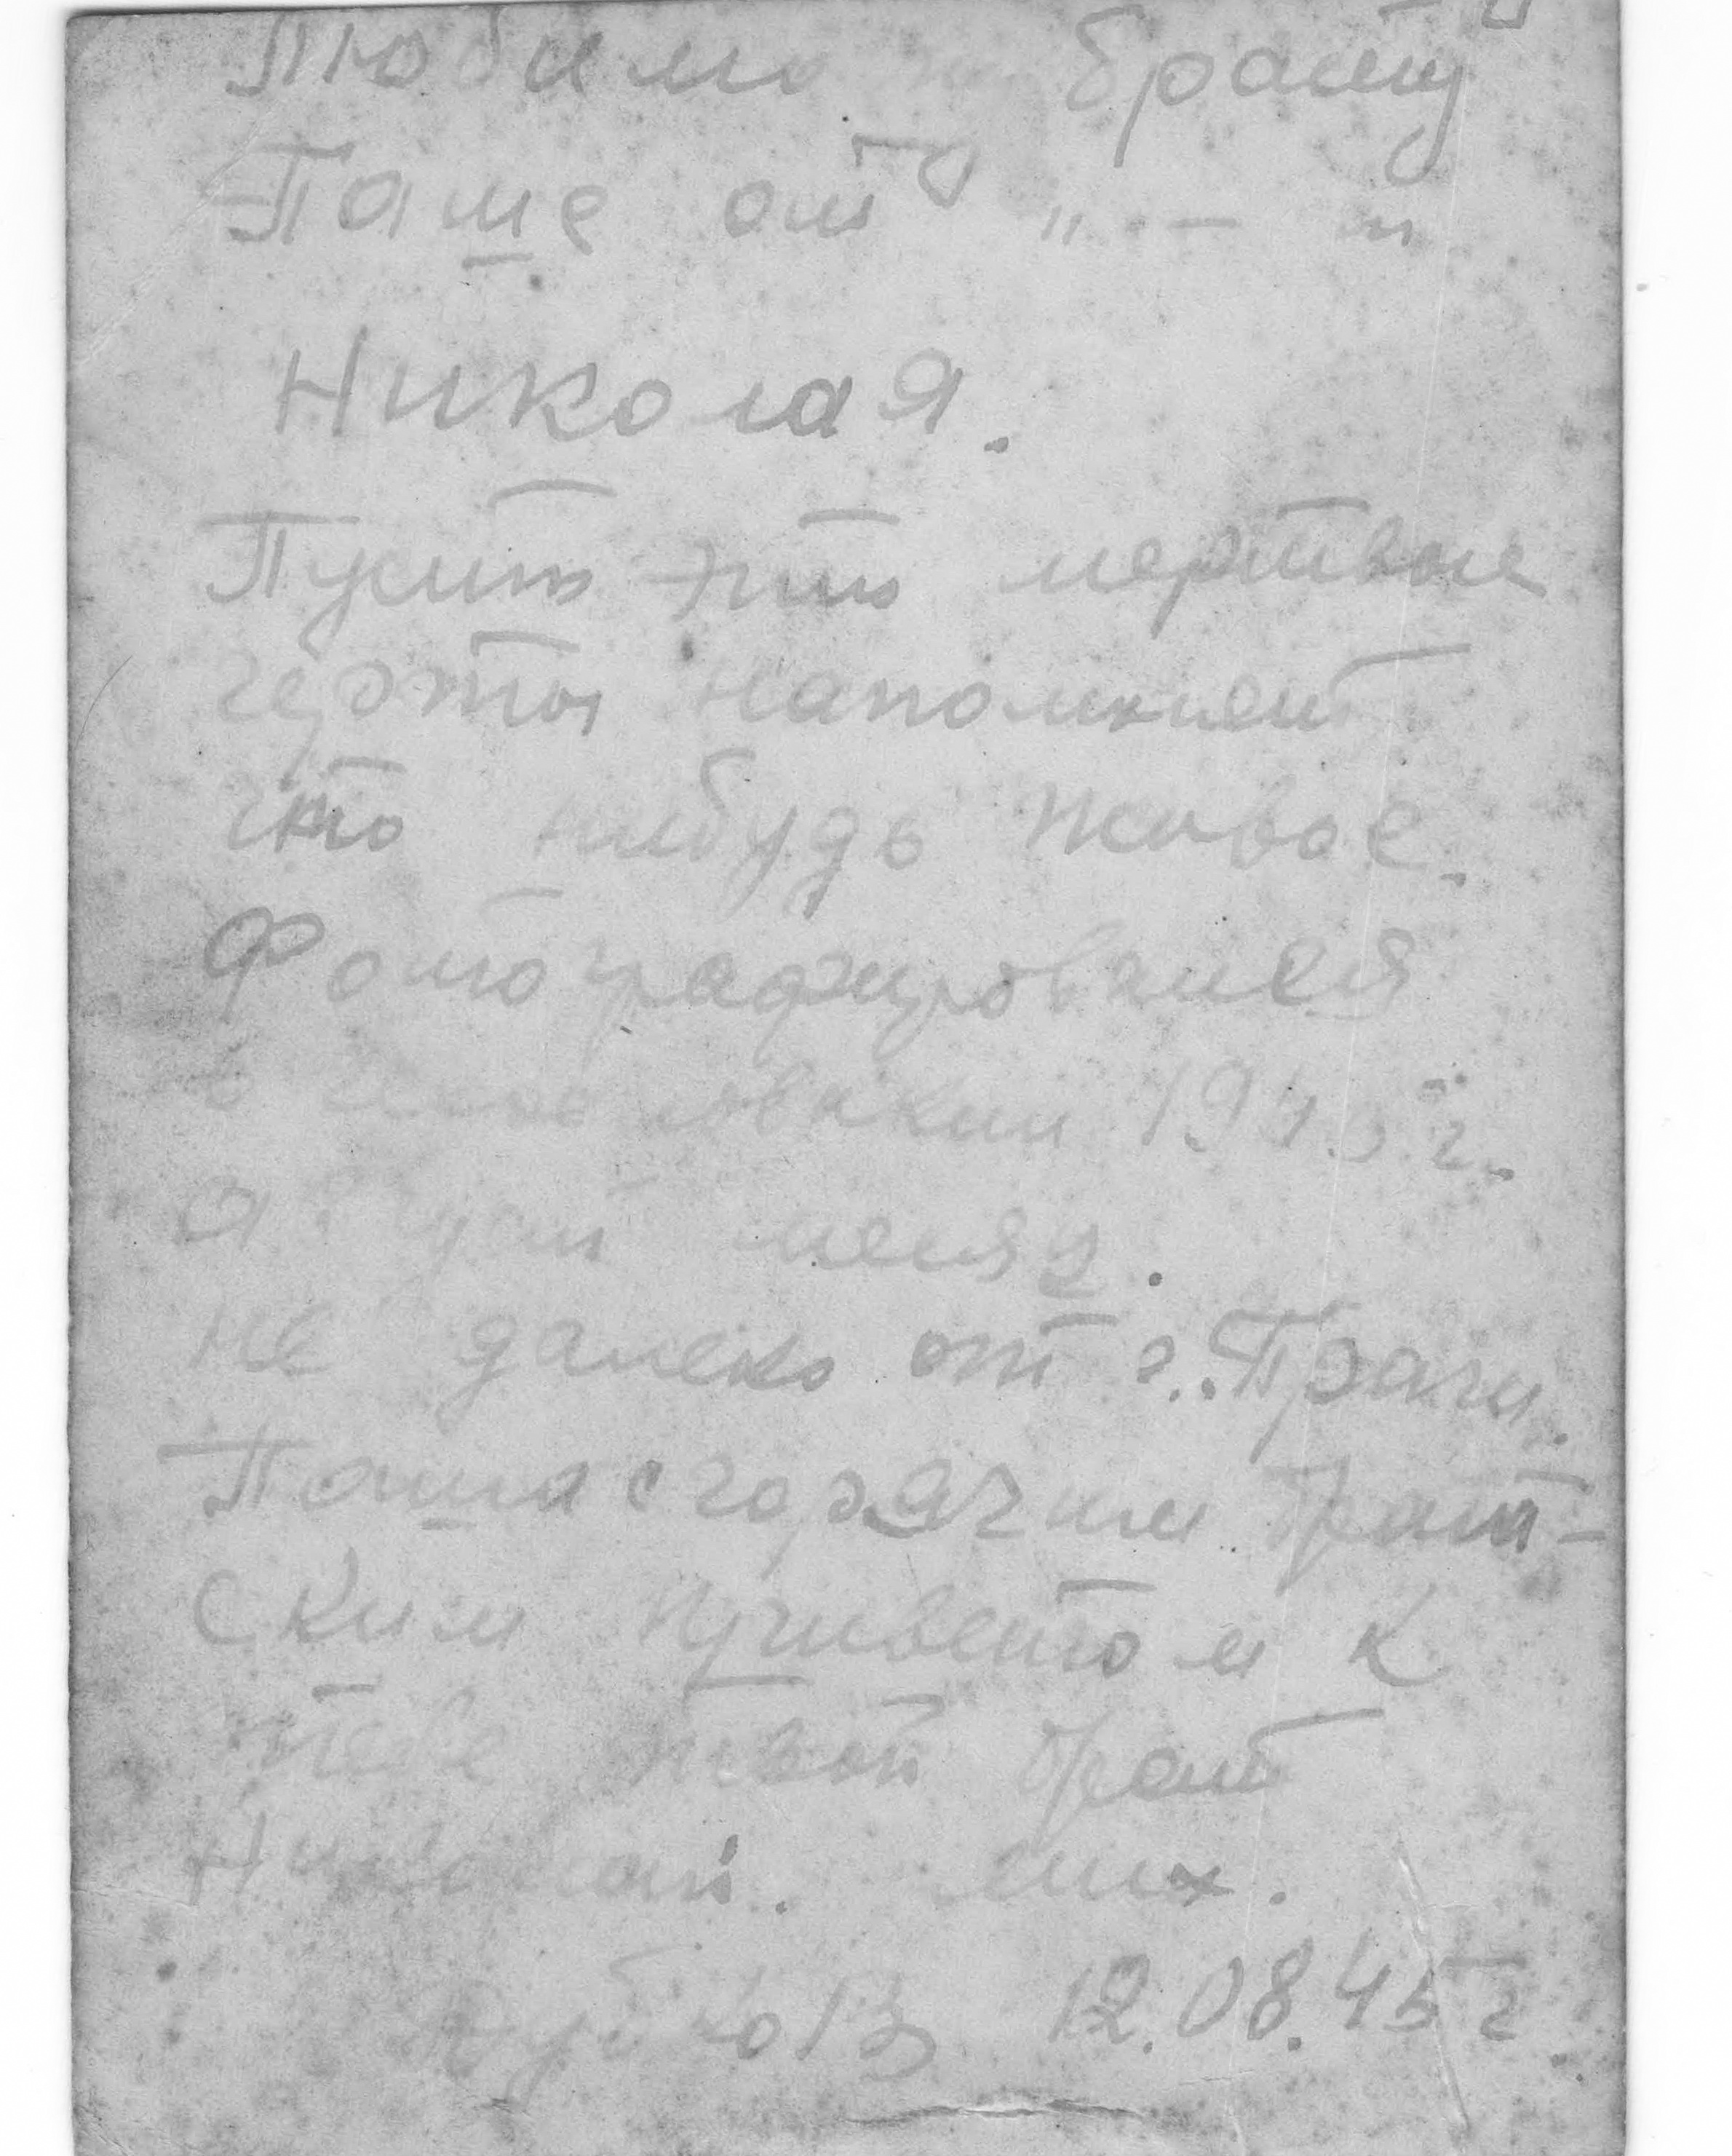 Любимо брату
Паше от " — "
Николая.
Пусть эти мертвые
черты напомнют
что нибудь живое.
Фотографировался
в 1945 г.
август месяц.
не далеко от г. Праги.
Паша с горячим брат-
ским приветом к
тебе твой брат
Николай. мих.
12.08.45 г.